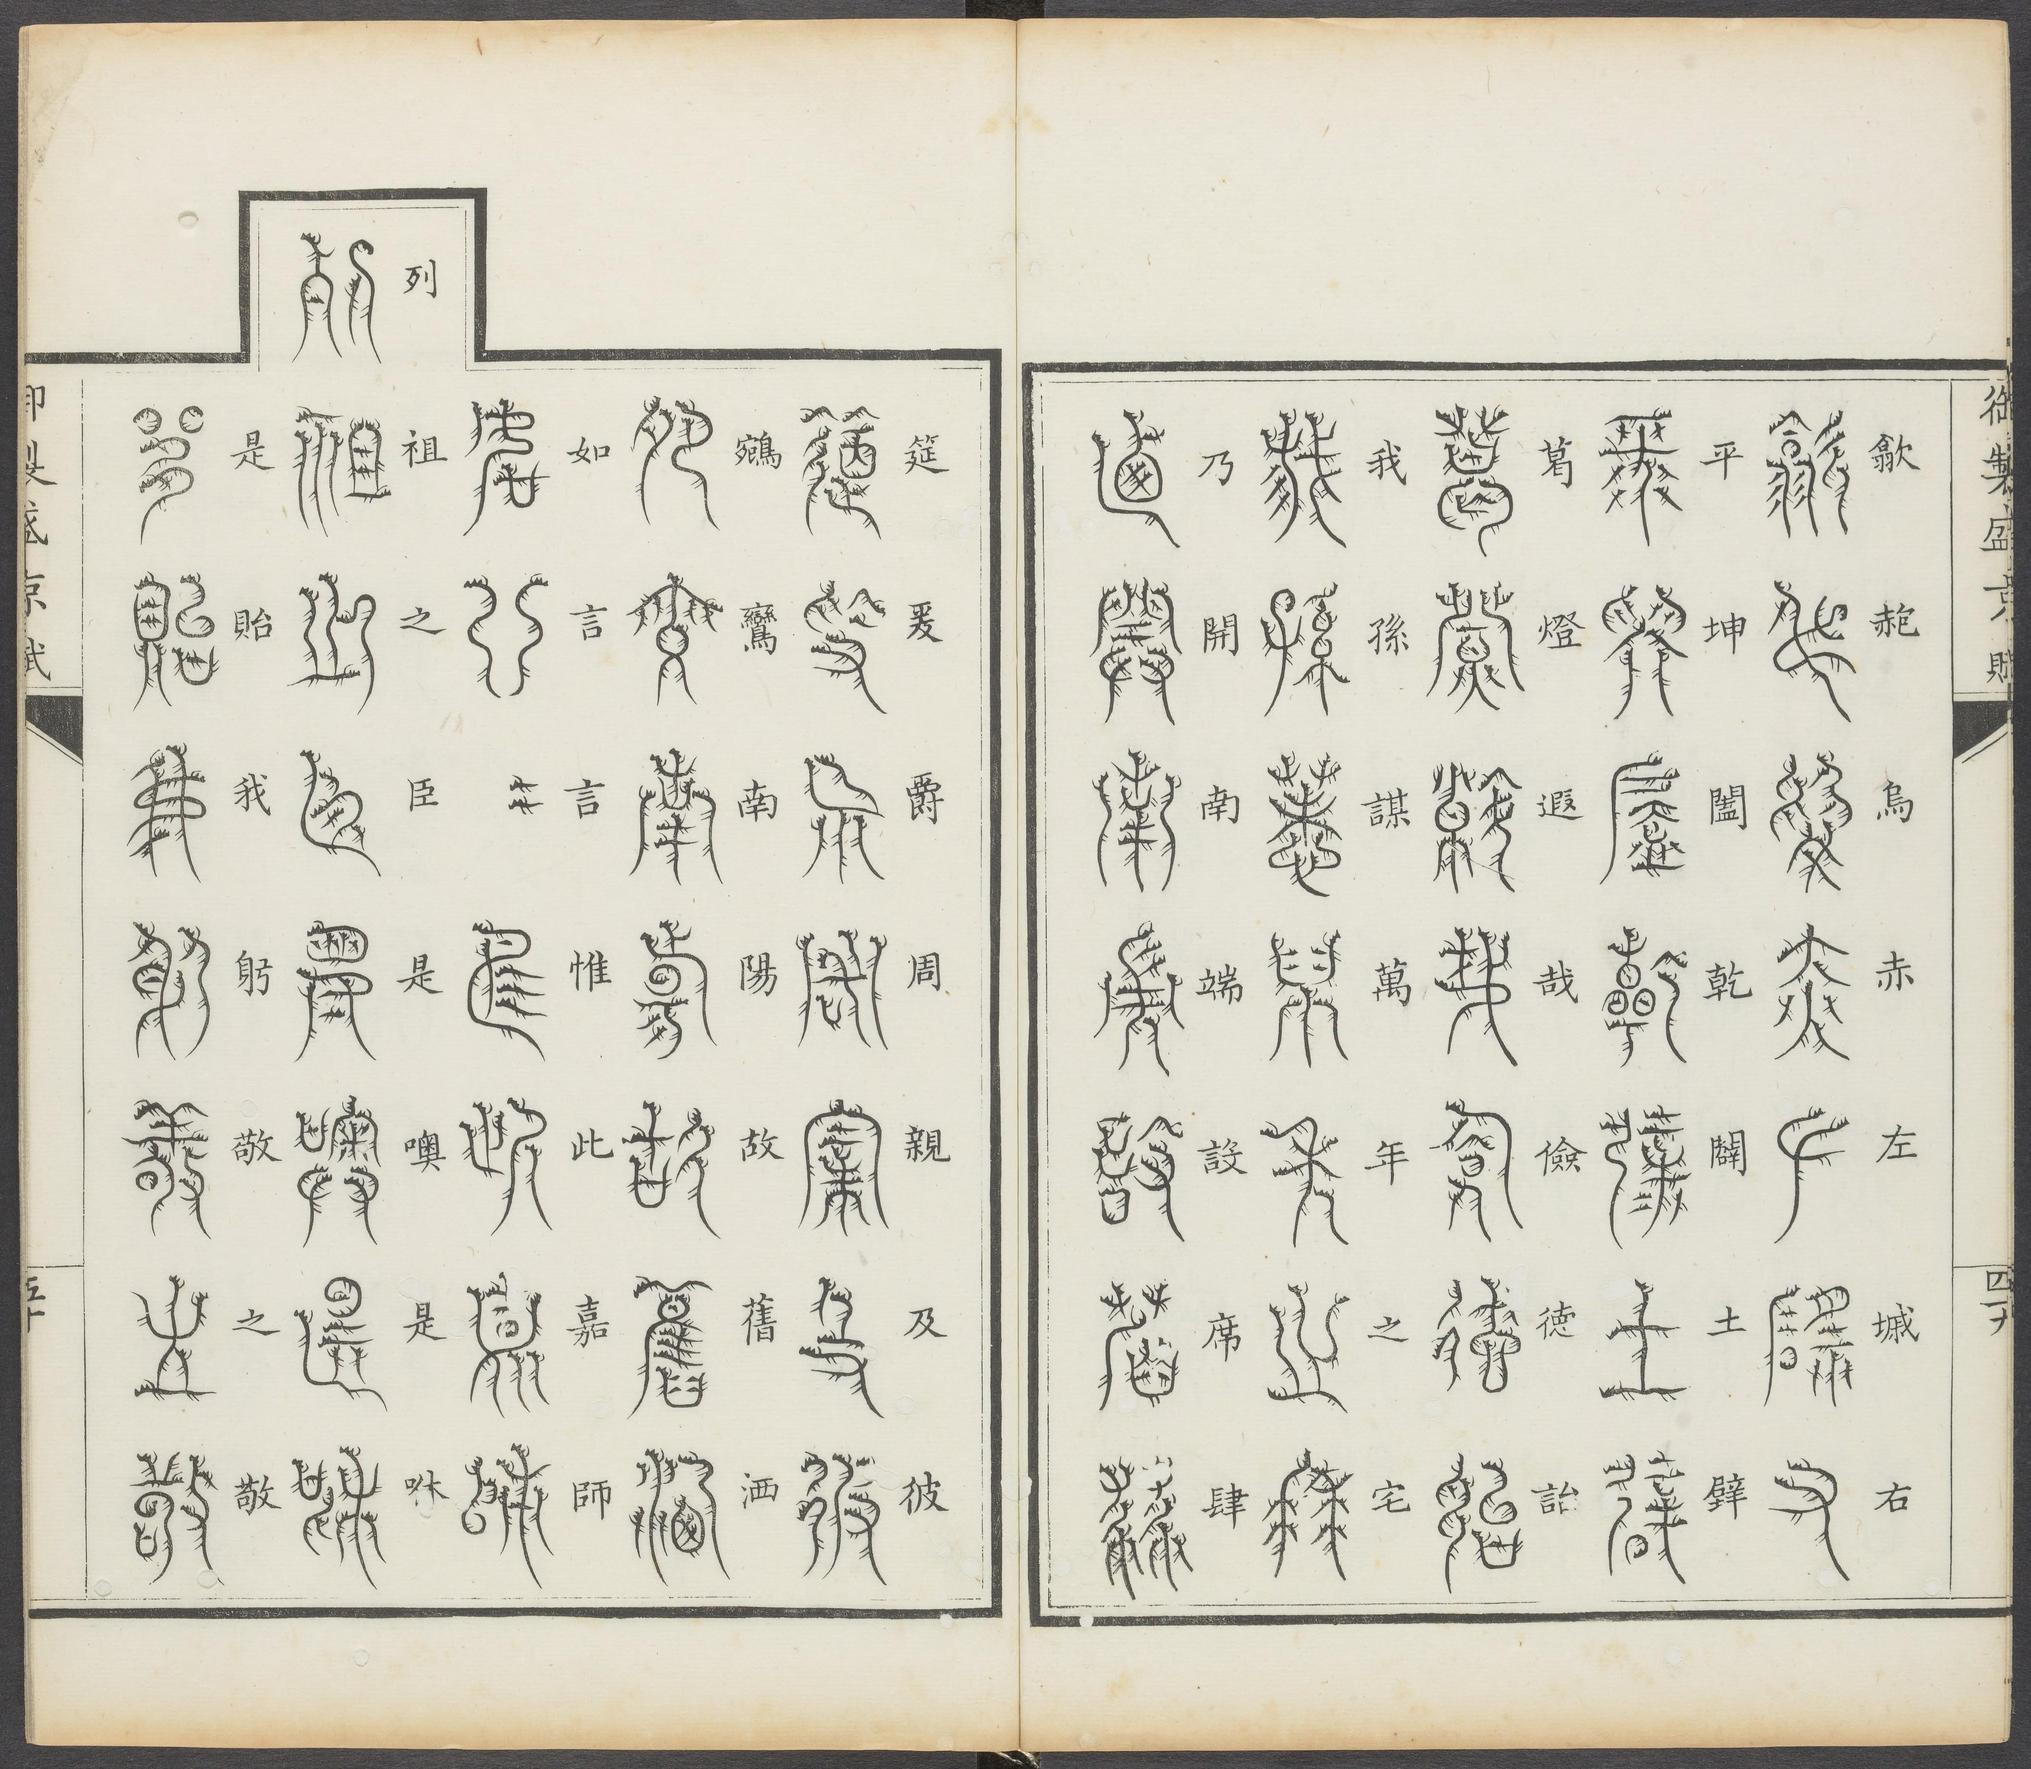 御製盛京賦
四九
歙赩烏赤左墄右
平坤闔乾闢土躃
葛燈遐哉儉德詒
我孫謀萬年之宅
乃開南端設席肆
筵爰爵周親及彼
鵷鸞南陽故舊洒
如言言惟此嘉師
列祖之臣是噢是咻
是貽我躬敬之敬
御製盛京賦
五十